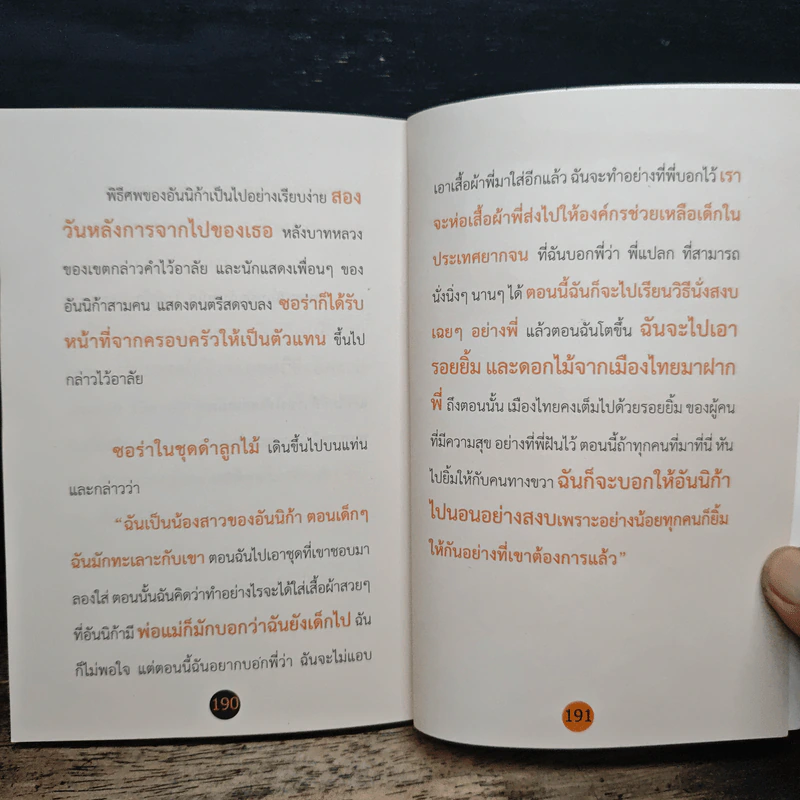 พิธีศพของอันนิก้าเป็นไปอย่างเรียบง่าย สอง
วันหลังการจากไปของเธอ หลังบาทหลวง
ของเขตกล่าวคำไว้อาลัย และนักแสดงเพื่อนๆ ของ
อันนิก้าสามคน แสดงดนตรีสดจบลง ซอร่าก็ได้รับ
หน้าที่จากครอบครัวให้เป็นตัวแทน ขึ้นไป
กล่าวไว้อาลัย
ซอร่าในชุดดำลูกไม้ เดินขึ้นไปบนแท่น
และกล่าวว่า
“ฉันเป็นน้องสาวของอันนิก้า ตอนเด็กๆ
ฉันมักทะเลาะกับเขา ตอนฉันไปเอาชุดที่เขาชอบมา
ลองใส่ ตอนนั้นฉันคิดว่าทำอย่างไรจะได้ใส่เสื้อผ้าสวยๆ
ที่อันนิก้ามี พ่อแม่ก็มักบอกว่าฉันยังเด็กไป ฉัน
ก็ไม่พอใจ แต่ตอนนี้ฉันอยากบอกพี่ว่า ฉันจะไม่แอบ
190
เอาเสื้อผ้าพี่มาใส่อีกแล้ว ฉันจะทำอย่างที่พี่บอกไว้ เรา
จะห่อเสื้อผ้าพี่ส่งไปให้องค์กรช่วยเหลือเด็กใน
ประเทศยากจน ที่ฉันบอกพี่ว่า พี่แปลก ที่สามารถ
นั่งนิ่งๆ นานๆ ได้ ตอนนี้ฉันก็จะไปเรียนวิธีนั่งสงบ
เฉยๆ อย่างพี่ แล้วตอนฉันโตขึ้น ฉันจะไปเอา
รอยยิ้ม และดอกไม้จากเมืองไทยมาฝาก
พี่ ถึงตอนนั้น เมืองไทยคงเต็มไปด้วยรอยยิ้ม ของผู้คน
ที่มีความสุข อย่างที่พี่ฝันไว้ ตอนนี้ถ้าทุกคนที่มาที่นี่ หัน
ไปยิ้มให้กับคนทางขวา ฉันก็จะบอกให้อันนิก้า
ไปนอนอย่างสงบเพราะอย่างน้อยทุกคนก็ยิ้ม
ให้กันอย่างที่เขาต้องการแล้ว”
191